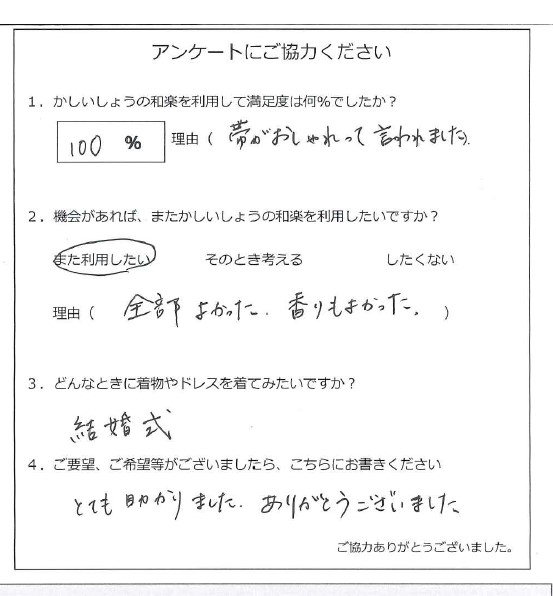 アンケートにご協力ください
1．かしいしょうの和楽を利用して満足度は何%でしたか？
100 % 理由（ 帯がおしゃれって言われました）
2．機会があれば、またかしいしょうの和楽を利用したいですか？
また利用したい そのとき考える したくない
理由（ 全部よかった．香りもよかった． ）
3．どんなときに着物やドレスを着てみたいですか？
結婚式
4．ご要望、ご希望等がございましたら、こちらにお書きください
とても助かりました．ありがとうございました
ご協力ありがとうございました。